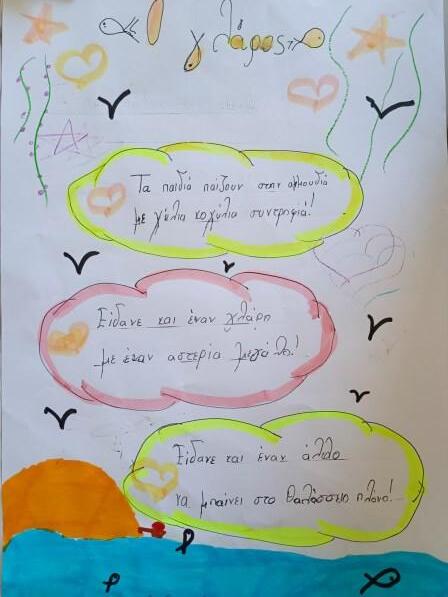 γλάρος
Τα παιδιά παίζουν στην αμμουδιά
με γέλια κοχύλια συντροφιά!
Είδανε και έναν γλάρο
με έναν αστερία μεγάλο!
Είδανε και έναν άλλο
να μπαίνει στο θαλάσσιο πλάνο!